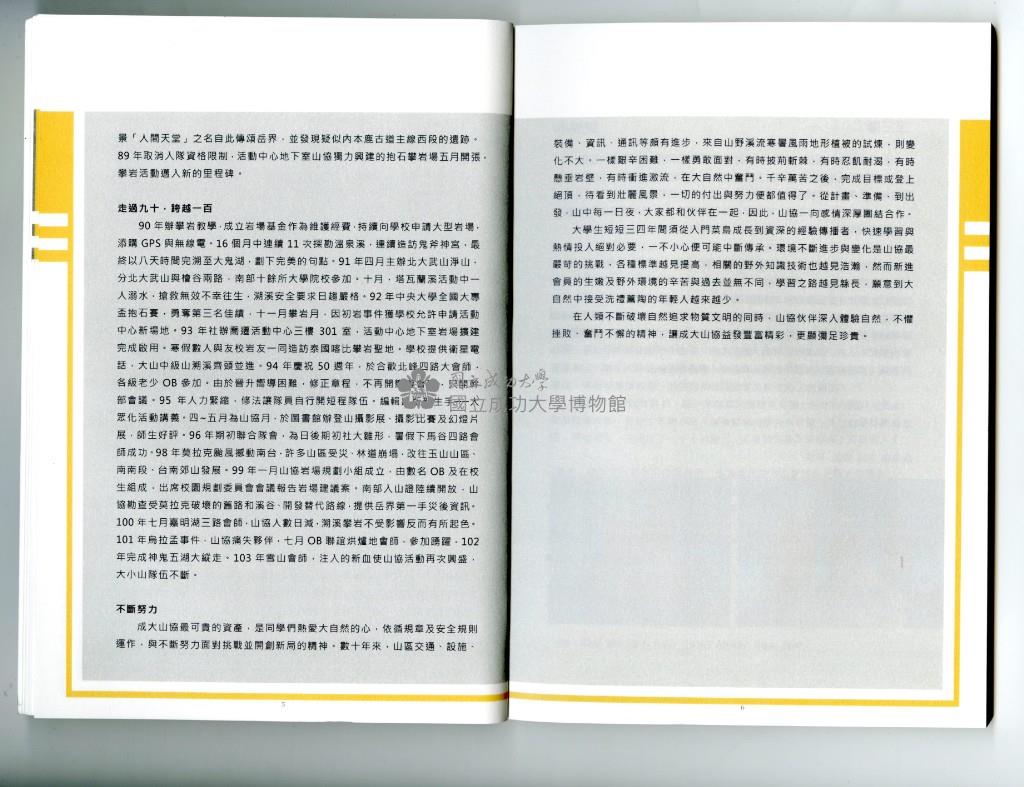 景「人間天堂」之名自此傳頌岳界，並發現疑似內本鹿古道主線西段的遺跡。
89 年取消入隊資格限制，活動中心地下室山協獨力興建的抱石攀岩場五月開張，
攀岩活動邁入新的里程碑。
走過九十，跨越一百
90 年辦攀岩教學，成立岩場基金作為維護經費，持續向學校申請大型岩場，
添購 GPS 與無線電。16 個月中連續 11 次探勘溫泉溪，連續造訪鬼斧神宮，最
終以八天時間完溯至大鬼湖，劃下完美的句點。91 年四月主辦北大武山淨山，
分北大武山與檜谷兩路，南部十餘所大學院校參加。十月，塔瓦蘭溪活動中一
人溺水，搶救無效不幸往生，溯溪安全要求日趨嚴格。92 年中央大學全國大專
盃抱石賽，勇奪第三名佳績，十一月攀岩月，因初岩事件獲學校允許申請活動
中心新場地。93 年社辦喬遷活動中心三樓 301 室，活動中心地下室岩場擴建
完成啟用。寒假數人與友校岩友一同造訪泰國喀比攀岩聖地。學校提供衛星電
話，大山中級山溯溪齊頭並進。94 年慶祝 50 週年，於合歡北峰四路大會師，
各級老少 OB 參加。由於晉升嚮導困難，修正章程，不再開嚮導會議，只開幹
部會議。95 年人力緊縮，修法讓隊員自行開短程隊伍。編輯
眾化活動講義。四~五月為山協月，於圖書館辦登山攝影展、攝影比賽及幻燈片
展，師生好評。96 年期初聯合隊會，為日後期初社大雛形，暑假下馬谷四路會
師成功。98 年莫拉克颱風撼動南台，許多山區受災、林道崩塌，改往玉山山區、
南南段、台南郊山發展。99 年一月山協岩場規劃小組成立，由數名 OB 及在校
生組成，出席校園規劃委員會會議報告岩場建議案。南部入山證陸續開放，山
協勘查受莫拉克破壞的舊路和溪谷、開發替代路線，提供岳界第一手災後資訊。
100 年七月嘉明湖三路會師，山協人數日減，溯溪攀岩不受影響反而有所起色。
101 年烏拉孟事件，山協痛失夥伴，七月 OB 聯誼烘爐地會師，參加踴躍，102
年完成神鬼五湖大縱走。103 年雪山會師，注入的新血使山協活動再次興盛，
大小山隊伍不斷。
不斷努力
成大山協最可貴的資產，是同學們熱愛大自然的心，依循規章及安全規則
運作，與不斷努力面對挑戰並開創新局的精神。數十年來，山區交通、設施、
5
裝備、資訊、通訊等頗有進步，來自山野溪流寒暑風雨地形植被的試煉，則變
化不大。一樣艱辛困難，一樣勇敢面對，有時披荊斬棘，有時忍飢耐渴，有時
懸垂岩壁，有時衝進激流，在大自然中奮鬥。千辛萬苦之後，完成目標或登上
絕頂，待看到壯麗風景，一切的付出與努力便都值得了。從計畫、準備、到出
發，山中每一日夜，大家都和伙伴在一起，因此，山協一向感情深厚團結合作。
大學生短短三四年間須從入門菜鳥成長到資深的經驗傳播者，快速學習與
熱情投入絕對必要，一不小心便可能中斷傳承。環境不斷進步與變化是山協最
嚴苛的挑戰，各種標準越見提高，相關的野外知識技術也越見浩瀚，然而新進
會員的生嫩及野外環境的辛苦與過去並無不同，學習之路越見綿長，願意到大
自然中接受洗禮薰陶的年輕人越來越少。
在人類不斷破壞自然追求物質文明的同時，山協伙伴深入體驗自然，不懼
挫敗、奮鬥不懈的精神，讓成大山協益發豐富精彩，更顯彌足珍貴。
6
國立成功大學
國立成功大學博物館